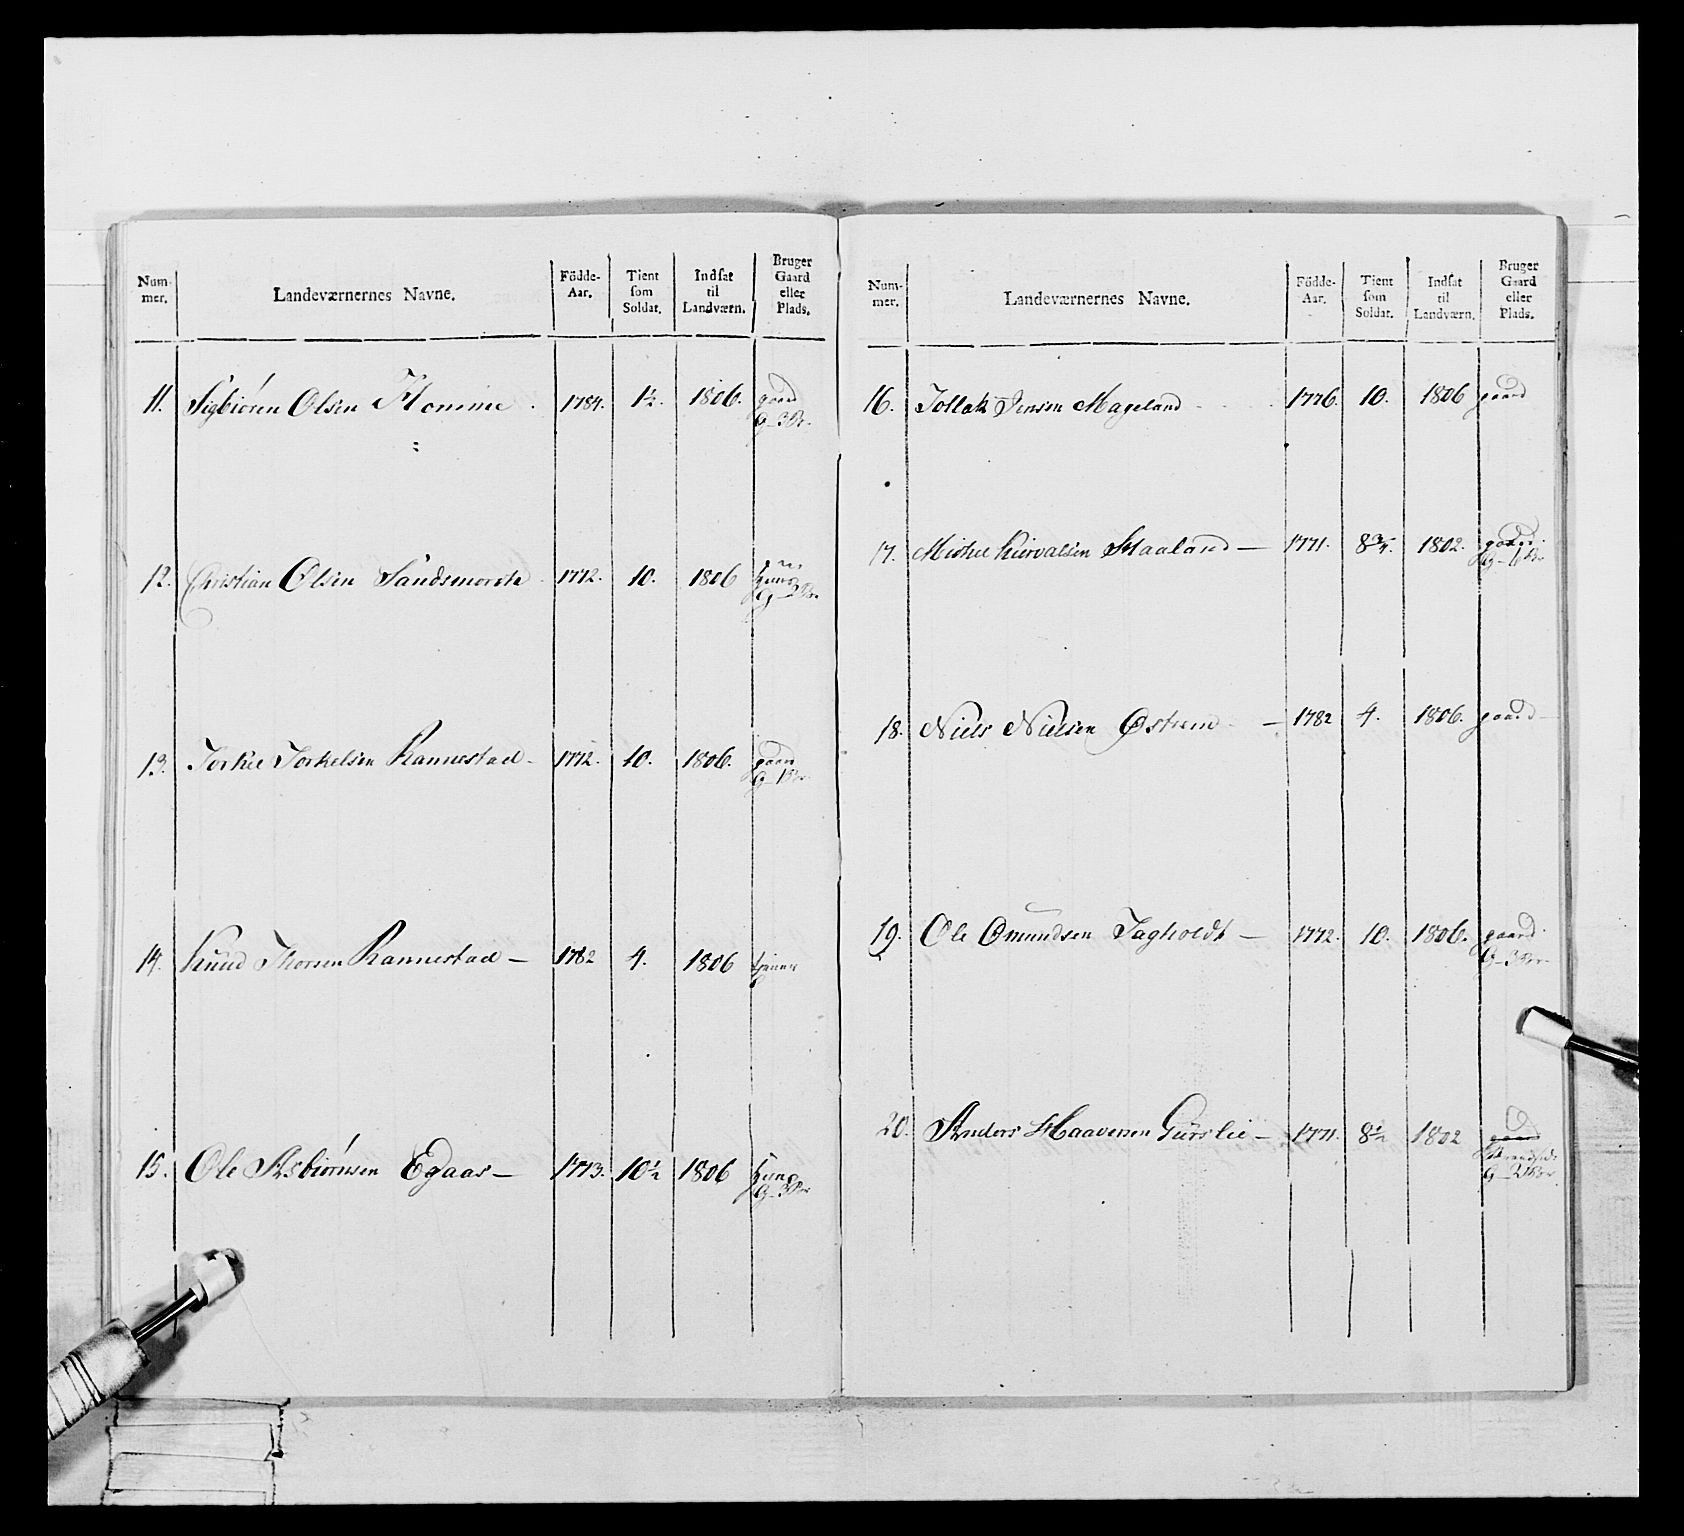 Num-
mer.
Landeværnernes Navne.
Födde-
Aar.
Tient
som
Soldat.
Indsat
til
Landværn.
Bruger
Gaard
eller
Plads.
11. Sigbiören Olsen Homme 1784. 1½. 1806. gaard
G-3Br.
12. Christian Olsen Sandsmorck 1772. 10. 1806
13. Torkel Torkelsen Rannestad - 1772. 10. 1806. gaard
G-1Br.
14. Knud Thorsen Rannestad - 1782 4. 1806 tjener
15. Ole Asbiörnsen Egaas - 1773. 10½ 1806
G-3Br
Num-
mer.
Landeværnernes Navne.
Födde-
Aar.
Tient
som
Soldat.
Indsat
til
Landværn.
Bruger
Gaard
eller
Plads.
16. Tollak Jensen Mageland 1776. 10. 1806 gaard
17. Mickel Siurvalsen Haaland - 1771. 8¾. 1802. gaard.
18. Niels Nielsen Østrem - 1782 4. 1806. gaard -
19. Ole Omundsen Tagholdt - 1772. 10. 1806. gaard.
G-3Br-
20. Anders Haavorsen Gurslie - 1771. 8½ 1802 gaard
G-2Br.